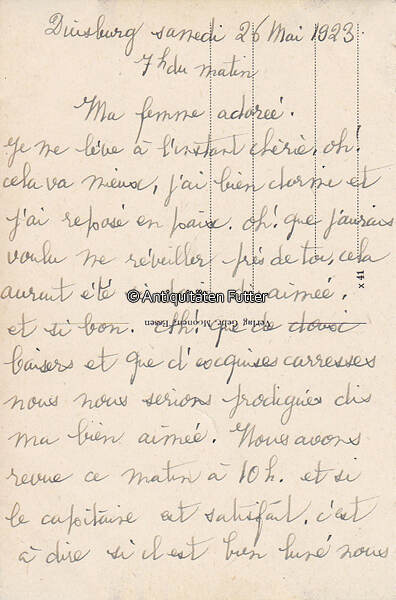 Duisburg samedi 26 Mai 1923
7h du matin
Ma femme adorée.
Je me lève à l'instant chérie, oh!
cela va mieux, j'ai bien dormi et
j'ai reposé en paix. Oh! que j'aurais
voulu me réveiller près de toi, cela
aurait été si bien aimée,
et si bon. Ah! que de doux
baisers et que d'exquises carresses
nous nous serions prodigués dis
ma bien aimée. Nous avons
revue ce matin à 10h. et si
le capitaine est satisfait, c'est
à dire si il est bien luné nous
© Antiquitäten Futter
Verlag Gebr. Essen